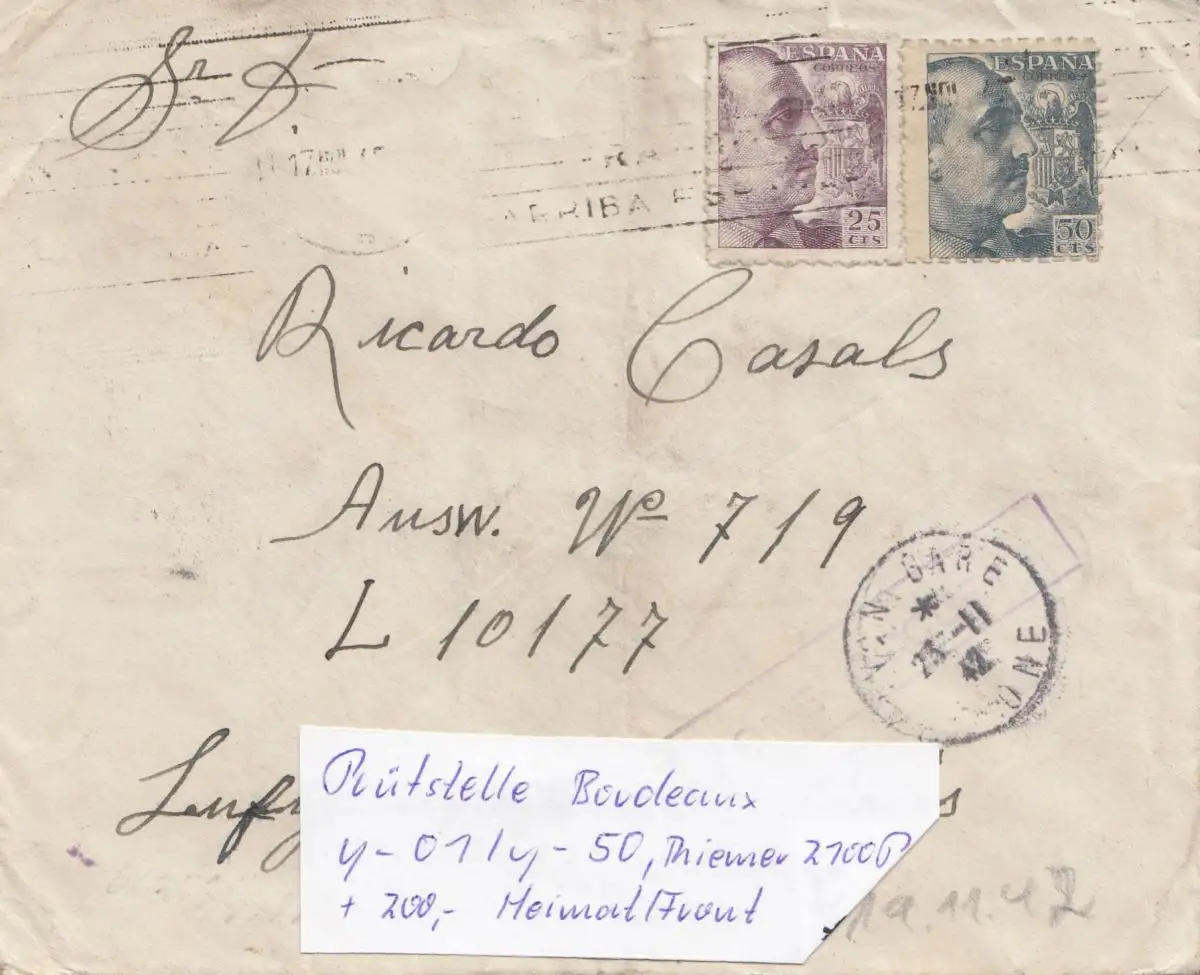 Sr. D.
ESPAÑA
CORREOS
25
CTS
ESPAÑA
CORREOS
50
CTS
17 NOV
ARRIBA ESP
Ricardo Casals
Ausw. Nº 719
L 10177
GARE
* 23 -11
42
Prüfstelle Bordeaux
y-01/y-50, Riemer 2100P
+ 200,- Heimat/Front
19.11.42